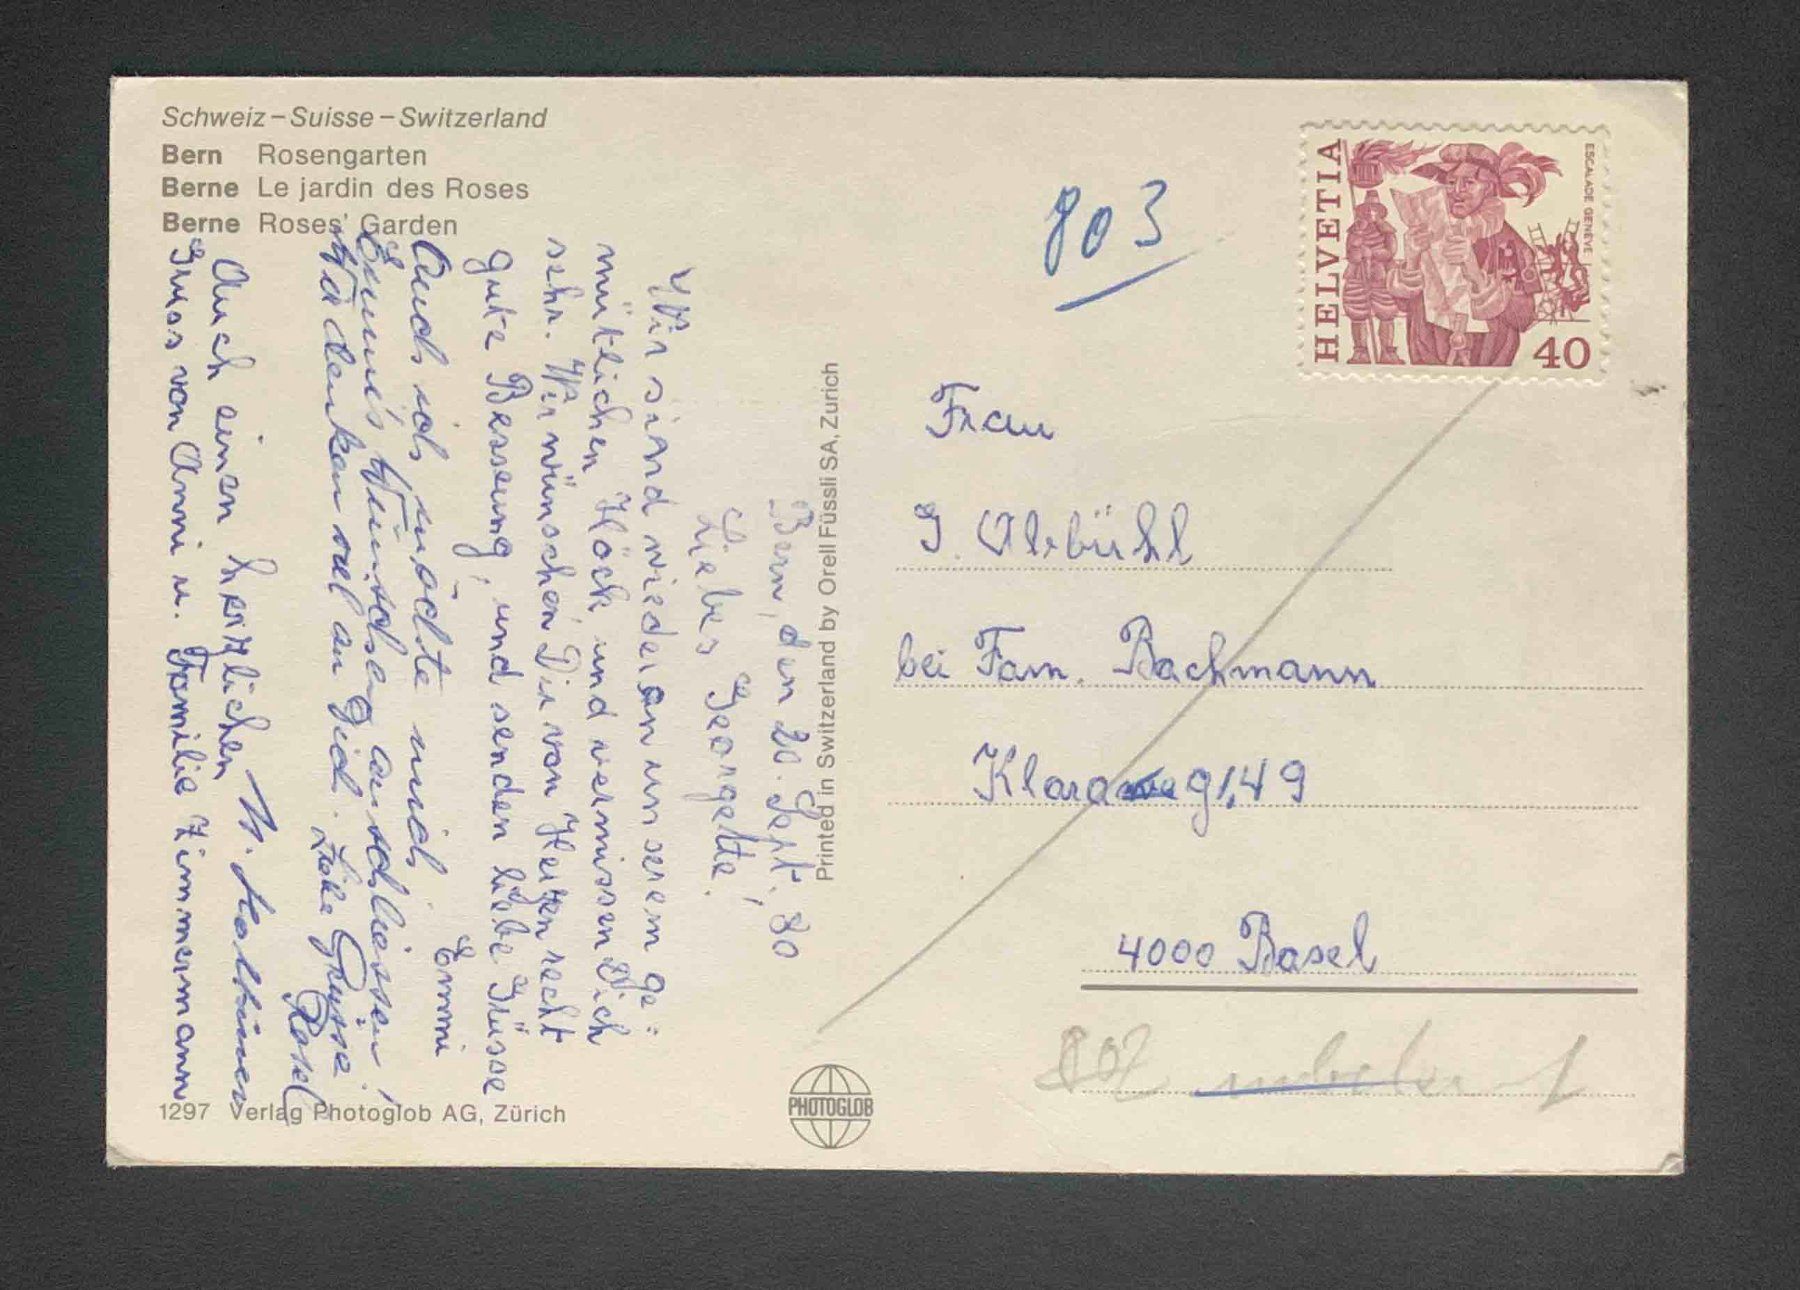 Schweiz – Suisse – Switzerland
Bern Rosengarten
Berne Le jardin des Roses
Berne Roses' Garden
Bern, den 20. Sept. 80
Liebes Georgette!
Wir sind wieder an unserem ge=
mütlichen Höck und vermissen Dich
sehr. Wir wünschen Dir von Herzen recht
gute Besserung, und senden liebe Grüsse
Emmi
Auch ich möchte mich
Emmi's Wünschen anschliessen!
Wir denken viel an Dich. Liebe Grüsse
Rosel
Auch einen herzlichen
Gruss von Anni u. Familie Zimmermann
1297 Verlag Photoglob AG, Zürich
Printed in Switzerland by Orell Füssli SA, Zurich
PHOTOGLOB
803
HELVETIA
ESCALADE GENÈVE
40
Frau
G. Aebühl
bei Fam. Bachmann
Klara 149
4000 Basel